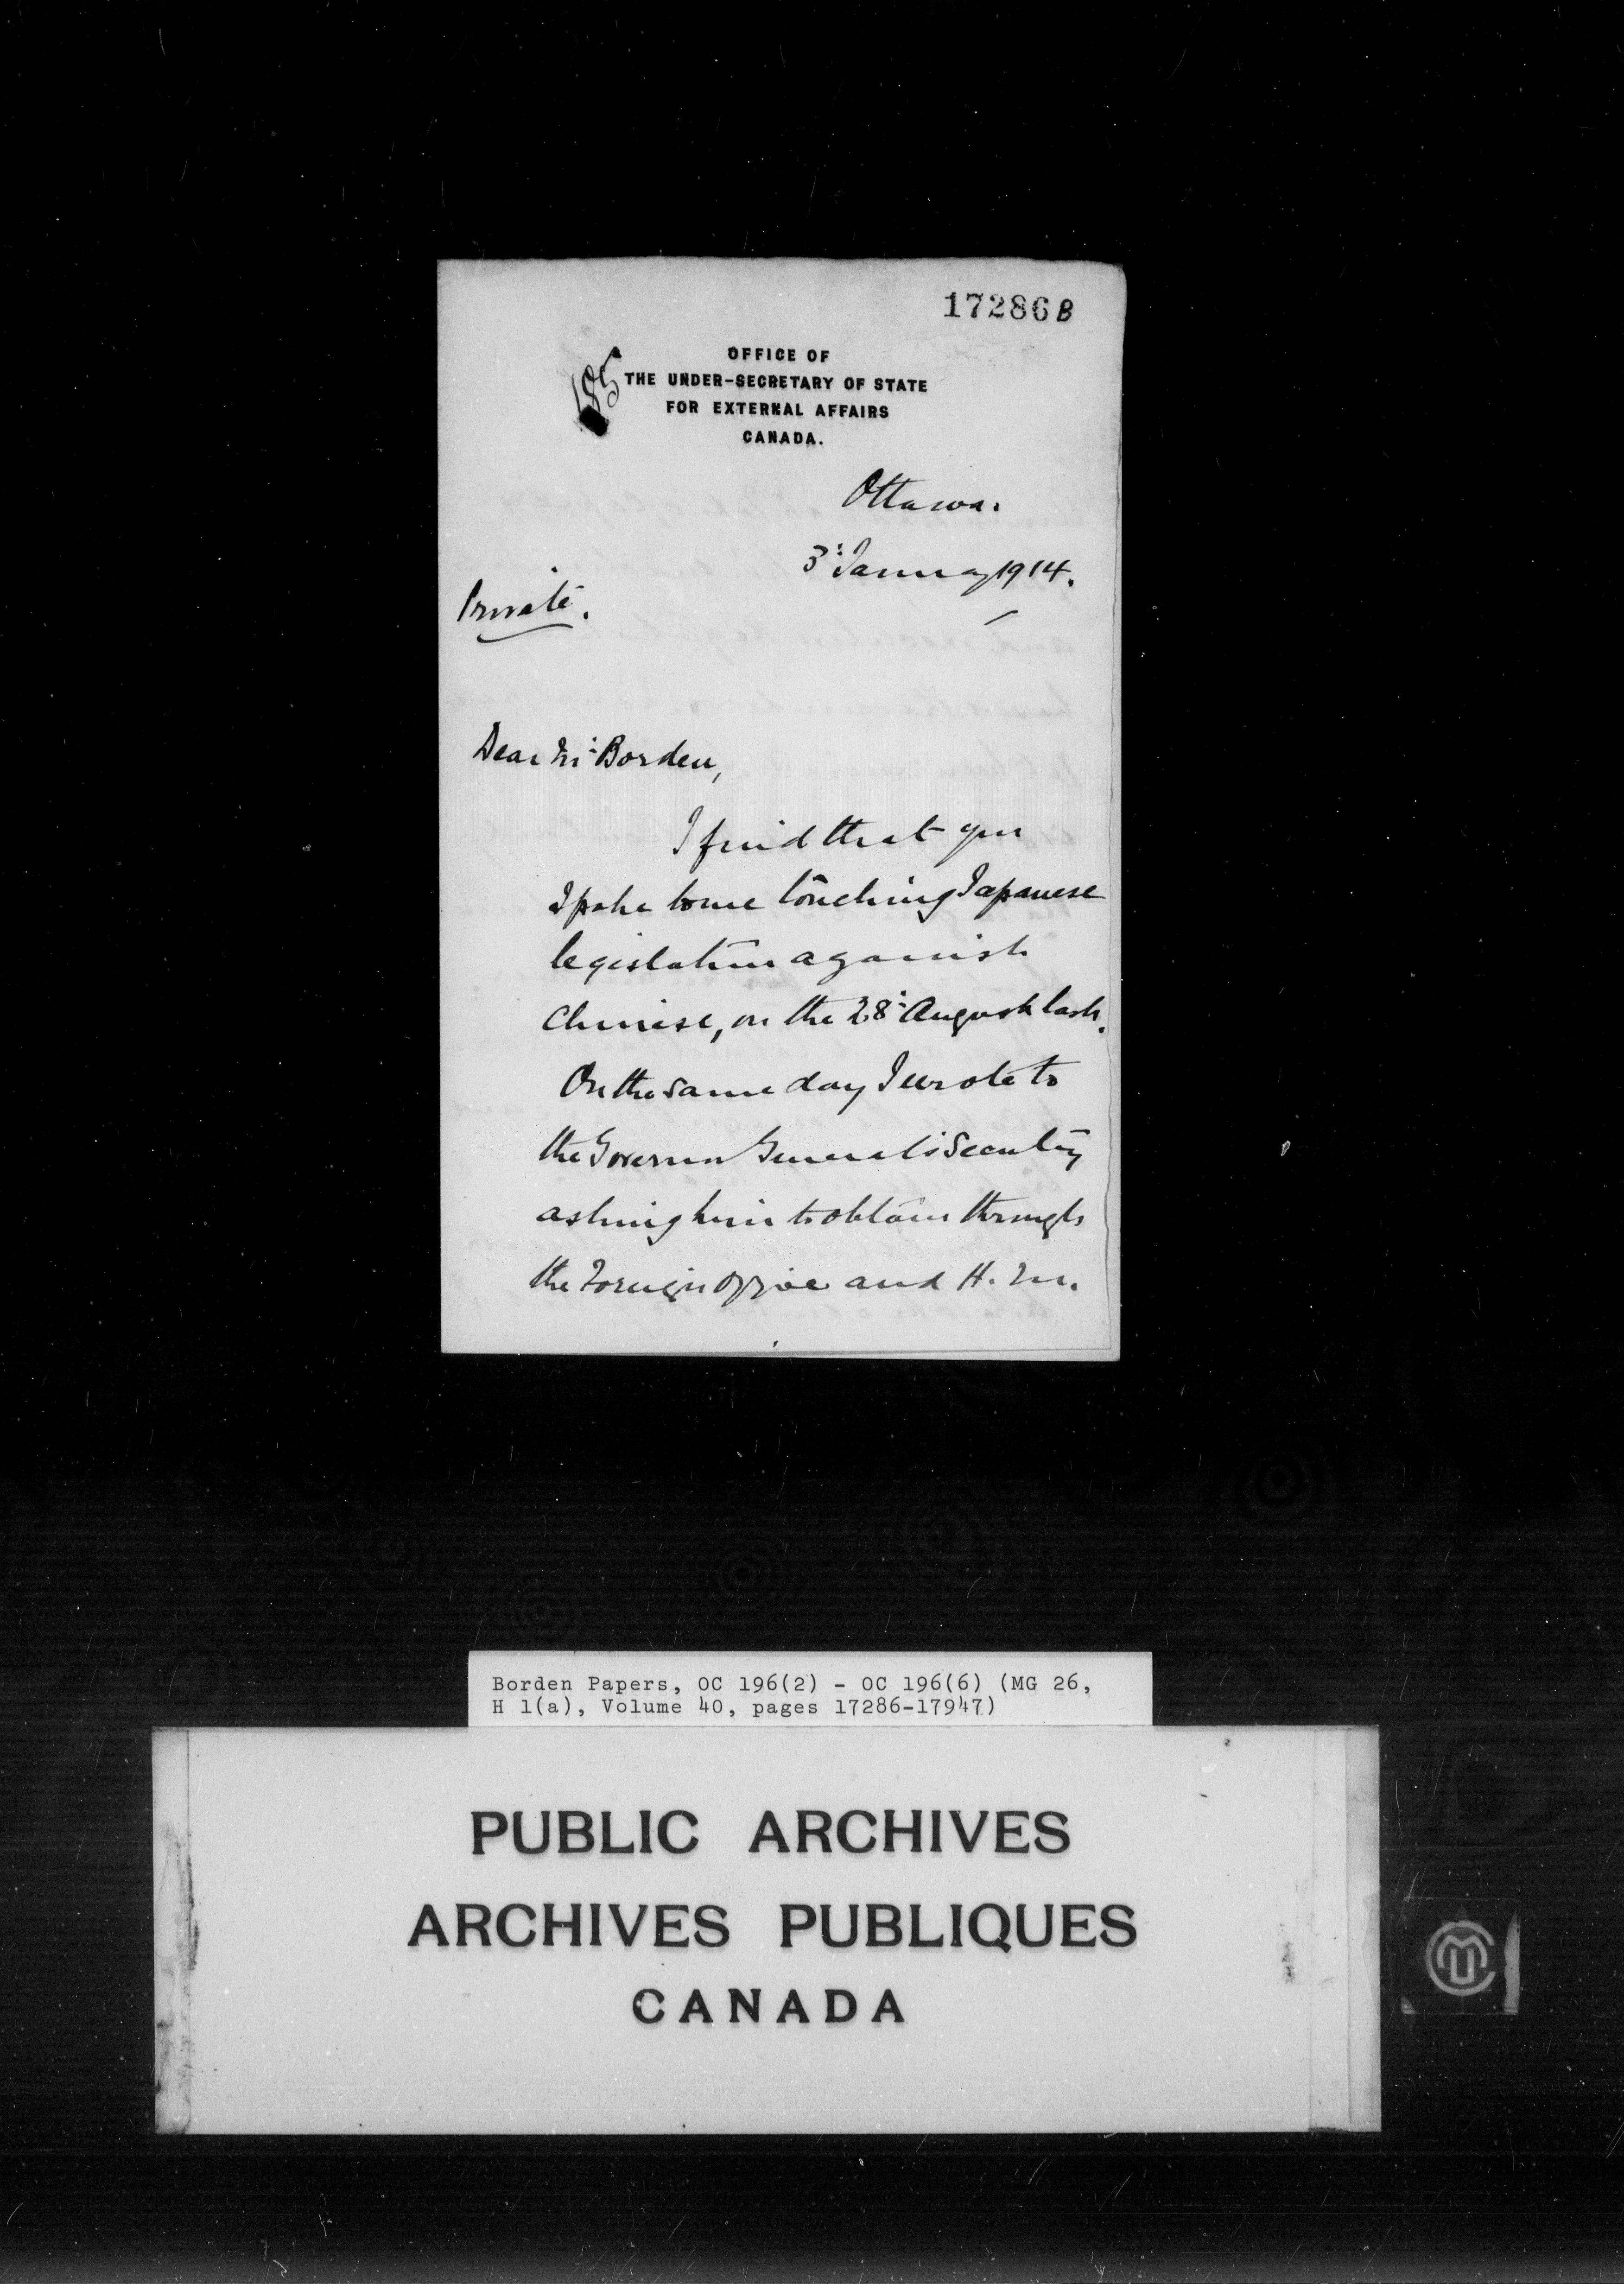 17286B
OFFICE OF
THE UNDER-SECRETARY OF STATE
FOR EXTERNAL AFFAIRS
CANADA.
185
Ottawa.
3: January 1914.
Private.
Dear Mr: Borden,
I find that you
spoke to me touching Japanese
legislation against
Chinese, on the 28: August last.
On the same day I wrote to
the Governor General's Secretary
asking him to obtain through
the Foreign Office and H. M.
Borden Papers, OC 196(2) - OC 196(6) (MG 26,
H 1(a), Volume 40, pages 17286-17947)
PUBLIC ARCHIVES
ARCHIVES PUBLIQUES
CANADA